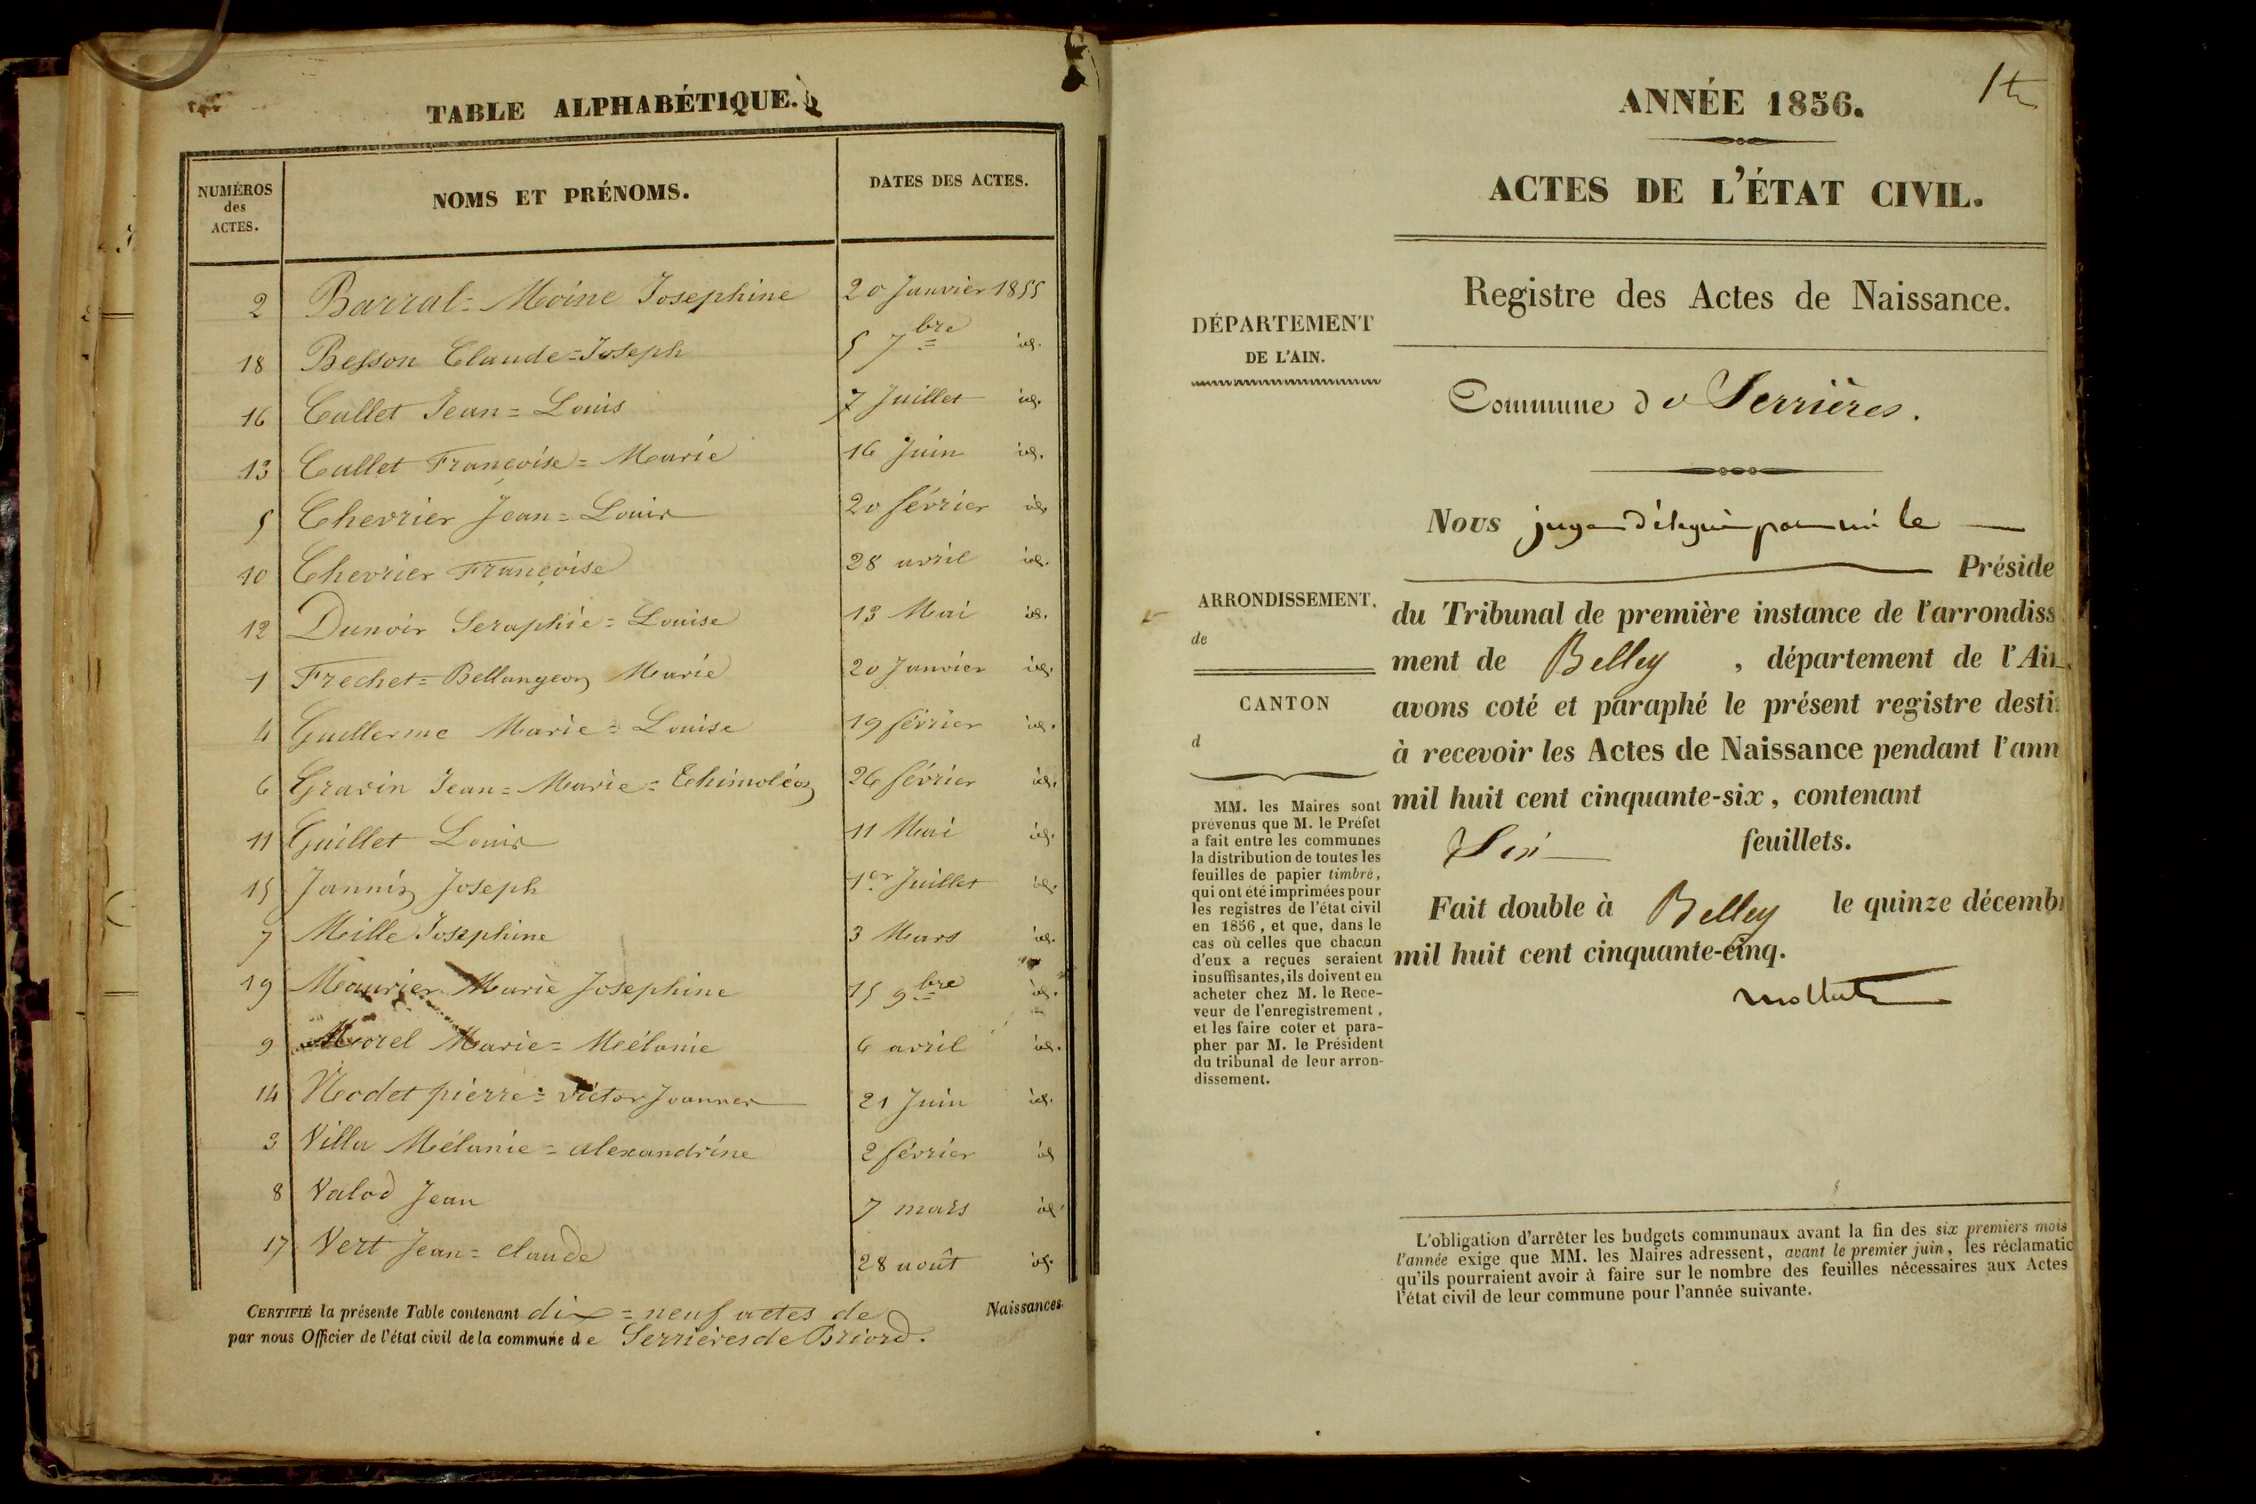 TABLE ALPHABÉTIQUE.
NUMÉROS des ACTES. NOMS ET PRÉNOMS. DATES DES ACTES.
2 Barral = Moine Josephine 20 Janvier 1855
18 Besson Claude = Joseph 5 7bre id.
16 Callet Jean = Louis 7 Juillet id.
13 Callet Françoise = Marie 16 Juin id.
5 Chevrier Jean = Louis 20 février id.
10 Chevrier Françoise 28 avril id.
12 Dunoir Seraphie = Louise 13 Mai id.
1 Frechet = Bellangeon Marie 20 Janvier id.
4 Guellerme Marie = Louise 19 février id.
6 Gravin Jean = Marie = Thimoléon 26 février id.
11 Guillet Louis 11 Mai id.
15 Jannin Joseph 1er Juillet id.
7 Meille Josephine 3 Mars id.
19 Meaurier Marie Josephine 15 9bre id.
9 Morel Marie = Mélanie 6 avril id.
14 Nodet pierre = victor Joannes 21 Juin id.
3 Villa Mélanie = alexandrine 2 février id
8 Valod Jean 7 mars id
17 Vert Jean = claude 28 août id.
CERTIFIÉ la présente Table contenant dix = neuf actes de Naissances
par nous Officier de l'état civil de la commune de Serrières de Briord.
1er
ANNÉE 1856.
ACTES DE L'ÉTAT CIVIL.
Registre des Actes de Naissance.
DÉPARTEMENT
DE L'AIN.
Commune de Serrières.
ARRONDISSEMENT.
de
CANTON
d
MM. les Maires sont
prévenus que M. le Préfet
a fait entre les communes
la distribution de toutes les
feuilles de papier timbré,
qui ont été imprimées pour
les registres de l'état civil
en 1856, et que, dans le
cas où celles que chacun
d'eux a reçues seraient
insuffisantes, ils doivent en
acheter chez M. le Rece-
veur de l'enregistrement,
et les faire coter et para-
pher par M. le Président
du tribunal de leur arron-
dissement.
Nous juge délégué par mr le
Préside
du Tribunal de première instance de l'arrondiss
ment de Belley, département de l'Ain,
avons coté et paraphé le présent registre desti
à recevoir les Actes de Naissance pendant l'ann
mil huit cent cinquante-six, contenant
Six feuillets.
Fait double à Belley le quinze décemb
mil huit cent cinquante-cinq.
L'obligation d'arrêter les budgets communaux avant la fin des six premiers mois
l'année exige que MM. les Maires adressent, avant le premier juin, les réclamatio
qu'ils pourraient avoir à faire sur le nombre des feuilles nécessaires aux Actes
l'état civil de leur commune pour l'année suivante.